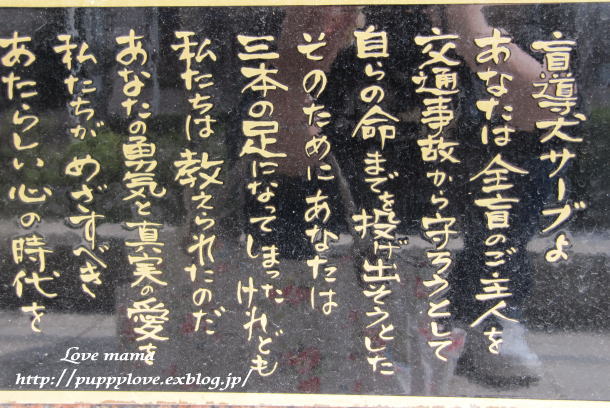 盲導犬サーブよ
あなたは全盲のご主人を
交通事故から守ろうとして
自らの命までを投げ出そうとした
そのためにあなたは
三本の足になってしまったけれども
私たちは教えられたのだ
あなたの勇気と真実の愛を
私たちがめざすべき
あたらしい心の時代を
Love mama
http://puppplove.exblog.jp/